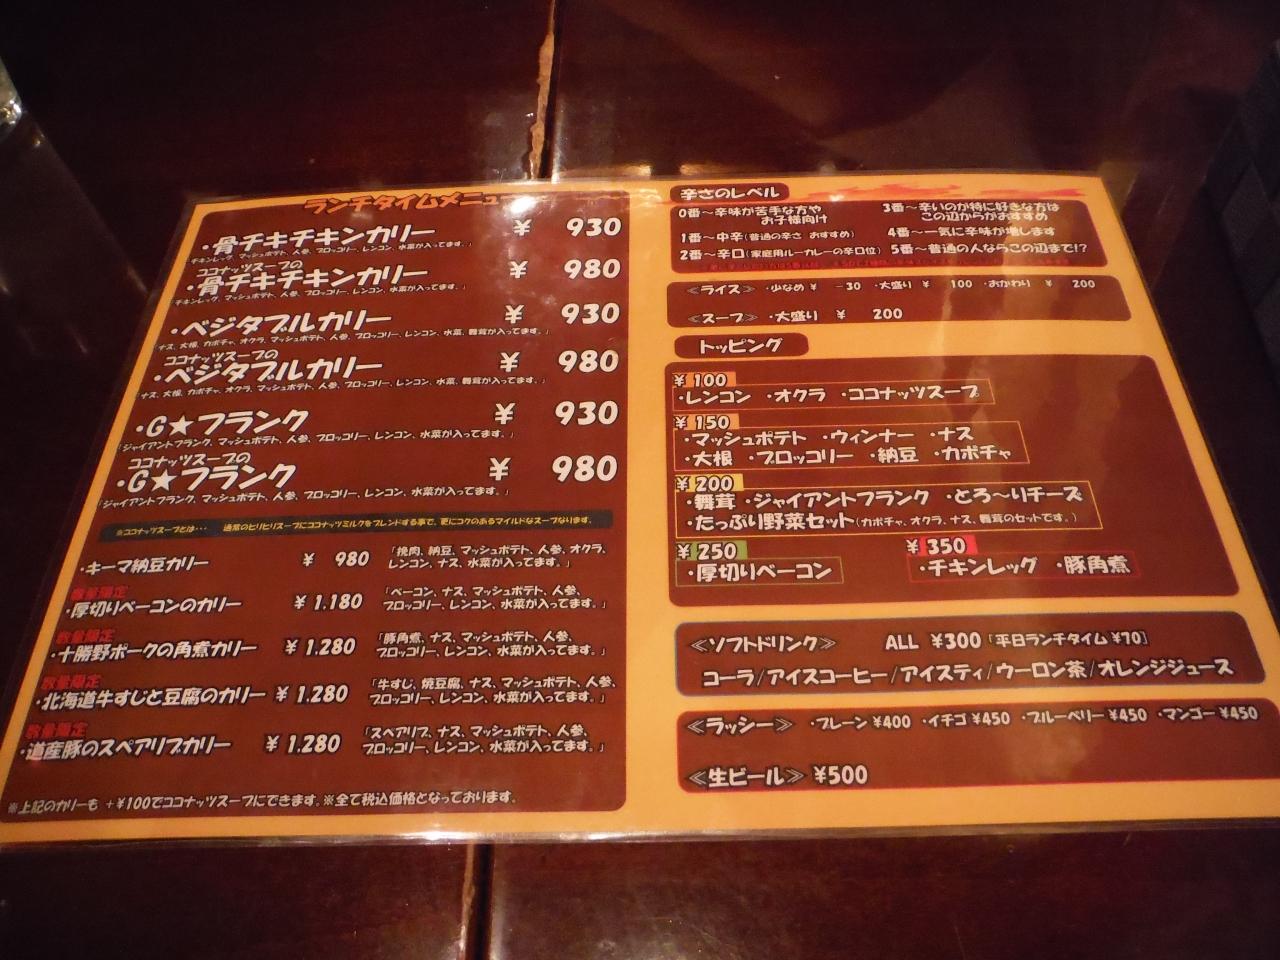 ランチタイムメニュー
・骨チキチキンカリー ¥ 930
チキンレッグ、マッシュポテト、人参、ブロッコリー、レンコン、水菜が入ってます。」
ココナッツスープの
・骨チキチキンカリー ¥ 980
チキンレッグ、マッシュポテト、人参、ブロッコリー、レンコン、水菜が入ってます。」
・ベジタブルカリー ¥ 930
「ナス、大根、カボチャ、オクラ、マッシュポテト、人参、ブロッコリー、レンコン、水菜、舞茸が入ってます。」
ココナッツスープの
・ベジタブルカリー ¥ 980
「ナス、大根、カボチャ、オクラ、マッシュポテト、人参、ブロッコリー、レンコン、水菜、舞茸が入ってます。」
・G★フランク ¥ 930
「ジャイアントフランク、マッシュポテト、人参、ブロッコリー、レンコン、水菜が入ってます。」
ココナッツスープの
・G★フランク ¥ 980
「ジャイアントフランク、マッシュポテト、人参、ブロッコリー、レンコン、水菜が入ってます。」
※ココナッツスープとは・・・ 通常のピリピリスープにココナッツミルクをブレンドする事で、更にコクのあるマイルドなスープなります。
・キーマ納豆カリー ¥ 980 「挽肉、納豆、マッシュポテト、人参、オクラ、
レンコン、ナス、水菜が入ってます。」
数量限定
・厚切りベーコンのカリー ¥ 1.180 「ベーコン、ナス、マッシュポテト、人参、
ブロッコリー、レンコン、水菜が入ってます。」
数量限定
・十勝野ポークの角煮カリー ¥ 1.280 「豚角煮、ナス、マッシュポテト、人参、
ブロッコリー、レンコン、水菜が入ってます。」
数量限定
・北海道牛すじと豆腐のカリー ¥ 1.280 「牛すじ、焼豆腐、ナス、マッシュポテト、人参、
ブロッコリー、レンコン、水菜が入ってます。」
数量限定
・道産豚のスペアリブカリー ¥ 1.280 「スペアリブ、ナス、マッシュポテト、人参、
ブロッコリー、レンコン、水菜が入ってます。」
※上記のカリーも +¥100でココナッツスープにできます。※全て税込価格となっております。
辛さのレベル
0番～辛味が苦手な方や
お子様向け
1番～中辛(普通の辛さ おすすめ)
2番～辛口(家庭用ルーカレーの辛口位)
3番～辛いのが特に好きな方は
この辺からがおすすめ
4番～一気に辛味が増します
5番～普通の人ならこの辺まで!?
≪ライス≫ ・少なめ ¥ -30 ・大盛り ¥ 100 ・おかわり ¥ 200
≪スープ≫ ・大盛り ¥ 200
トッピング
¥ 100
・レンコン ・オクラ ・ココナッツスープ
¥ 150
・マッシュポテト ・ウィンナー ・ナス
・大根 ・ブロッコリー ・納豆 ・カボチャ
¥ 200
・舞茸 ・ジャイアントフランク ・とろ～りチーズ
・たっぷり野菜セット(カボチャ、オクラ、ナス、舞茸のセットです。)
¥ 250
・厚切りベーコン
¥ 350
・チキンレッグ ・豚角煮
≪ソフトドリンク≫ ALL ¥300「平日ランチタイム ¥70」
コーラ/アイスコーヒー/アイスティ/ウーロン茶/オレンジジュース
≪ラッシー≫ ・プレーン ¥400 ・イチゴ ¥450 ・ブルーベリー ¥450 ・マンゴー ¥450
≪生ビール≫ ¥500